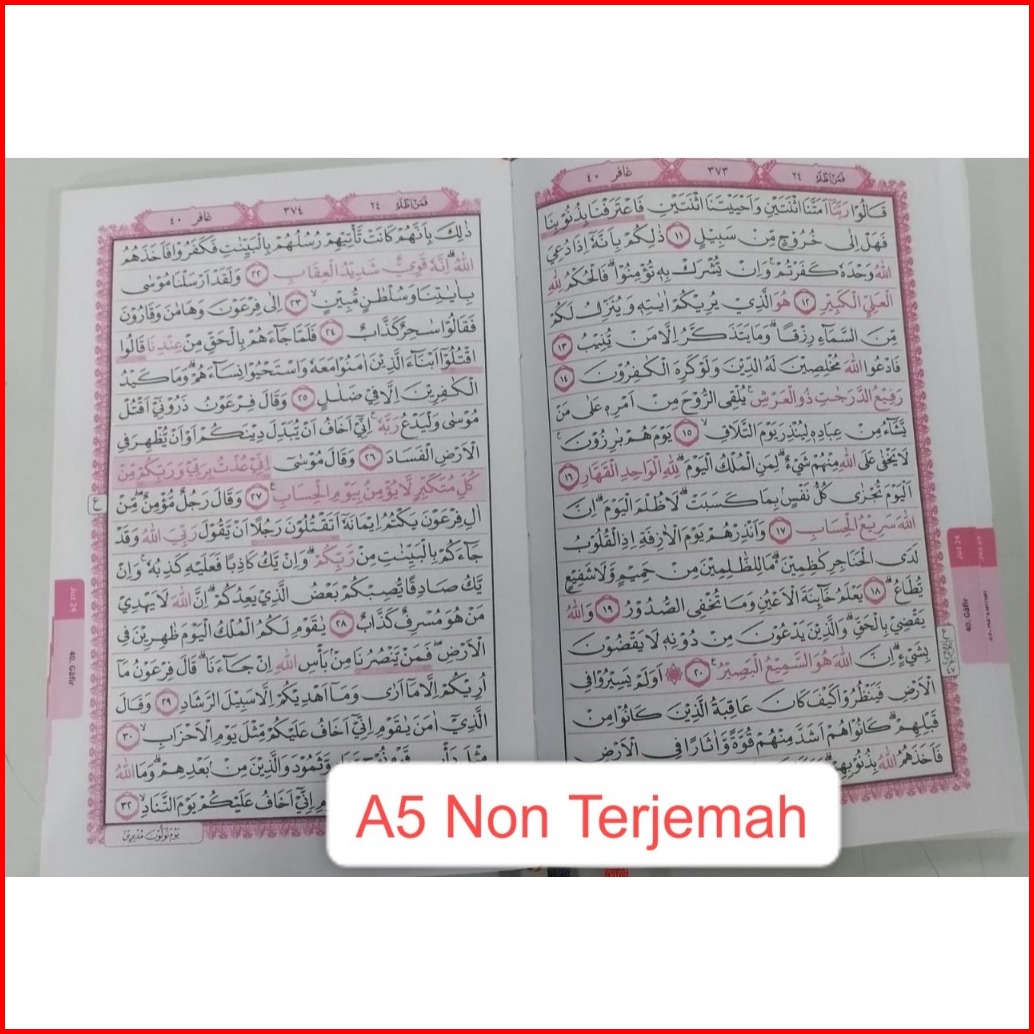 فَمَنْ اَظْلَمُ ٢٤ ٣٧٣ غافر ٤٠
قَالُوْا رَبَّنَآ اَمَتَّنَا اثْنَتَيْنِ وَاَحْيَيْتَنَا اثْنَتَيْنِ فَاعْتَرَفْنَا بِذُنُوْبِنَا
فَهَلْ اِلٰى خُرُوْجٍ مِّنْ سَبِيْلٍ ١١ ذٰلِكُمْ بِاَنَّهٗٓ اِذَا دُعِيَ
اللّٰهُ وَحْدَهٗ كَفَرْتُمْۚ وَاِنْ يُّشْرَكْ بِهٖ تُؤْمِنُوْاۗ فَالْحُكْمُ لِلّٰهِ
الْعَلِيِّ الْكَبِيْرِ ١٢ هُوَ الَّذِيْ يُرِيْكُمْ اٰيٰتِهٖ وَيُنَزِّلُ لَكُمْ
مِّنَ السَّمَاۤءِ رِزْقًاۗ وَمَا يَتَذَكَّرُ اِلَّا مَنْ يُّنِيْبُ ١٣
فَادْعُوا اللّٰهَ مُخْلِصِيْنَ لَهُ الدِّيْنَ وَلَوْ كَرِهَ الْكٰفِرُوْنَ ١٤
رَفِيْعُ الدَّرَجٰتِ ذُو الْعَرْشِۚ يُلْقِى الرُّوْحَ مِنْ اَمْرِهٖ عَلٰى مَنْ
يَّشَاۤءُ مِنْ عِبَادِهٖ لِيُنْذِرَ يَوْمَ التَّلَاقِۙ ١٥ يَوْمَ هُمْ بَارِزُوْنَۚ
لَا يَخْفٰى عَلَى اللّٰهِ مِنْهُمْ شَيْءٌۗ لِمَنِ الْمُلْكُ الْيَوْمَۗ لِلّٰهِ الْوَاحِدِ الْقَهَّارِ ١٦
اَلْيَوْمَ تُجْزٰى كُلُّ نَفْسٍۢ بِمَا كَسَبَتْۗ لَا ظُلْمَ الْيَوْمَۗ اِنَّ
اللّٰهَ سَرِيْعُ الْحِسَابِ ١٧ وَاَنْذِرْهُمْ يَوْمَ الْاٰزِفَةِ اِذِ الْقُلُوْبُ
لَدَى الْحَنَاجِرِ كٰظِمِيْنَۗ مَا لِلظّٰلِمِيْنَ مِنْ حَمِيْمٍ وَّلَا شَفِيْعٍ
يُّطَاعُۗ ١٨ يَعْلَمُ خَاۤىِٕنَةَ الْاَعْيُنِ وَمَا تُخْفِى الصُّدُوْرُ ١٩ وَاللّٰهُ
يَقْضِيْ بِالْحَقِّۗ وَالَّذِيْنَ يَدْعُوْنَ مِنْ دُوْنِهٖ لَا يَقْضُوْنَ
بِشَيْءٍۗ اِنَّ اللّٰهَ هُوَ السَّمِيْعُ الْبَصِيْرُ ٢٠ ۞ اَوَلَمْ يَسِيْرُوْا فِى
الْاَرْضِ فَيَنْظُرُوْا كَيْفَ كَانَ عَاقِبَةُ الَّذِيْنَ كَانُوْا مِنْ
قَبْلِهِمْۗ كَانُوْا هُمْ اَشَدَّ مِنْهُمْ قُوَّةً وَّاٰثَارًا فِى الْاَرْضِ
فَاَخَذَهُمُ اللّٰهُ بِذُنُوْبِهِمْۗ
Juz 24
40. Gāfir
فَمَنْ اَظْلَمُ ٢٤ ٣٧٤ غافر ٤٠
ذٰلِكَ بِاَنَّهُمْ كَانَتْ تَّأْتِيْهِمْ رُسُلُهُمْ بِالْبَيِّنٰتِ فَكَفَرُوْا فَاَخَذَهُمُ
اللّٰهُ ۗاِنَّهٗ قَوِيٌّ شَدِيْدُ الْعِقَابِ ٢٢ وَلَقَدْ اَرْسَلْنَا مُوْسٰى
بِاٰيٰتِنَا وَسُلْطٰنٍ مُّبِيْنٍۙ ٢٣ اِلٰى فِرْعَوْنَ وَهَامٰنَ وَقَارُوْنَ
فَقَالُوْا سٰحِرٌ كَذَّابٌ ٢٤ فَلَمَّا جَاۤءَهُمْ بِالْحَقِّ مِنْ عِنْدِنَا قَالُوا
اقْتُلُوْٓا اَبْنَاۤءَ الَّذِيْنَ اٰمَنُوْا مَعَهٗ وَاسْتَحْيُوْا نِسَاۤءَهُمْۗ وَمَا كَيْدُ
الْكٰفِرِيْنَ اِلَّا فِيْ ضَلٰلٍ ٢٥ وَقَالَ فِرْعَوْنُ ذَرُوْنِيْٓ اَقْتُلْ
مُوْسٰى وَلْيَدْعُ رَبَّهٗۚ اِنِّيْٓ اَخَافُ اَنْ يُّبَدِّلَ دِيْنَكُمْ اَوْ اَنْ يُّظْهِرَ فِى
الْاَرْضِ الْفَسَادَ ٢٦ وَقَالَ مُوْسٰىٓ اِنِّيْ عُذْتُ بِرَبِّيْ وَرَبِّكُمْ مِّنْ
كُلِّ مُتَكَبِّرٍ لَّا يُؤْمِنُ بِيَوْمِ الْحِسَابِࣖ ٢٧ وَقَالَ رَجُلٌ مُّؤْمِنٌۖ مِّنْ
اٰلِ فِرْعَوْنَ يَكْتُمُ اِيْمَانَهٗٓ اَتَقْتُلُوْنَ رَجُلًا اَنْ يَّقُوْلَ رَبِّيَ اللّٰهُ وَقَدْ
جَاۤءَكُمْ بِالْبَيِّنٰتِ مِنْ رَّبِّكُمْۗ وَاِنْ يَّكُ كَاذِبًا فَعَلَيْهِ كَذِبُهٗۚ وَاِنْ
يَّكُ صَادِقًا يُّصِبْكُمْ بَعْضُ الَّذِيْ يَعِدُكُمْۚ اِنَّ اللّٰهَ لَا يَهْدِيْ
مَنْ هُوَ مُسْرِفٌ كَذَّابٌ ٢٨ يٰقَوْمِ لَكُمُ الْمُلْكُ الْيَوْمَ ظٰهِرِيْنَ فِى
الْاَرْضِۖ فَمَنْ يَّنْصُرُنَا مِنْۢ بَأْسِ اللّٰهِ اِنْ جَاۤءَنَاۗ قَالَ فِرْعَوْنُ مَآ
اُرِيْكُمْ اِلَّا مَآ اَرٰى وَمَآ اَهْدِيْكُمْ اِلَّا سَبِيْلَ الرَّشَادِ ٢٩ وَقَالَ
الَّذِيْٓ اٰمَنَ يٰقَوْمِ اِنِّيْٓ اَخَافُ عَلَيْكُمْ مِّثْلَ يَوْمِ الْاَحْزَابِۙ ٣٠
مِثْلَ دَأْبِ قَوْمِ نُوْحٍ وَّعَادٍ وَّثَمُوْدَ وَالَّذِيْنَ مِنْۢ بَعْدِهِمْۗ وَمَا اللّٰهُ
اِنِّيْٓ اَخَافُ عَلَيْكُمْ يَوْمَ التَّنَادِۙ ٣٢
يَوْمَ تُوَلُّوْنَ مُدْبِرِيْنَ
ع
Juz 24
40. Gāfir
A5 Non Terjemah